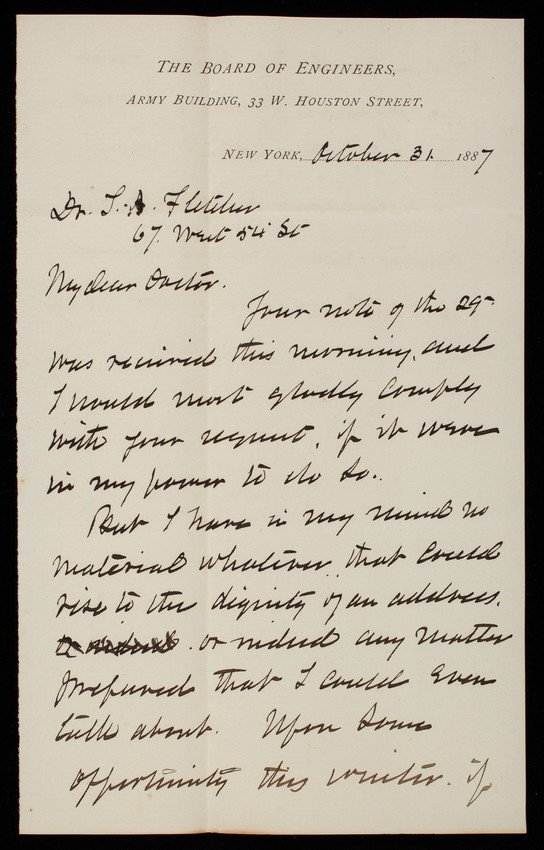 THE BOARD OF ENGINEERS,
ARMY BUILDING, 33 W. HOUSTON STREET,
NEW YORK, October 31. 1887
Dr. Fletcher
67. West 54 St
My dear Doctor.
Your note of the 29th
was received this morning, and
I would most gladly comply
with your request, if it were
in my power to do so.
But I have in my mind no
material whatever that could
rise to the dignity of an address.
or indeed any matter
prepared that I could even
talk about. Upon some
opportunity this winter. if